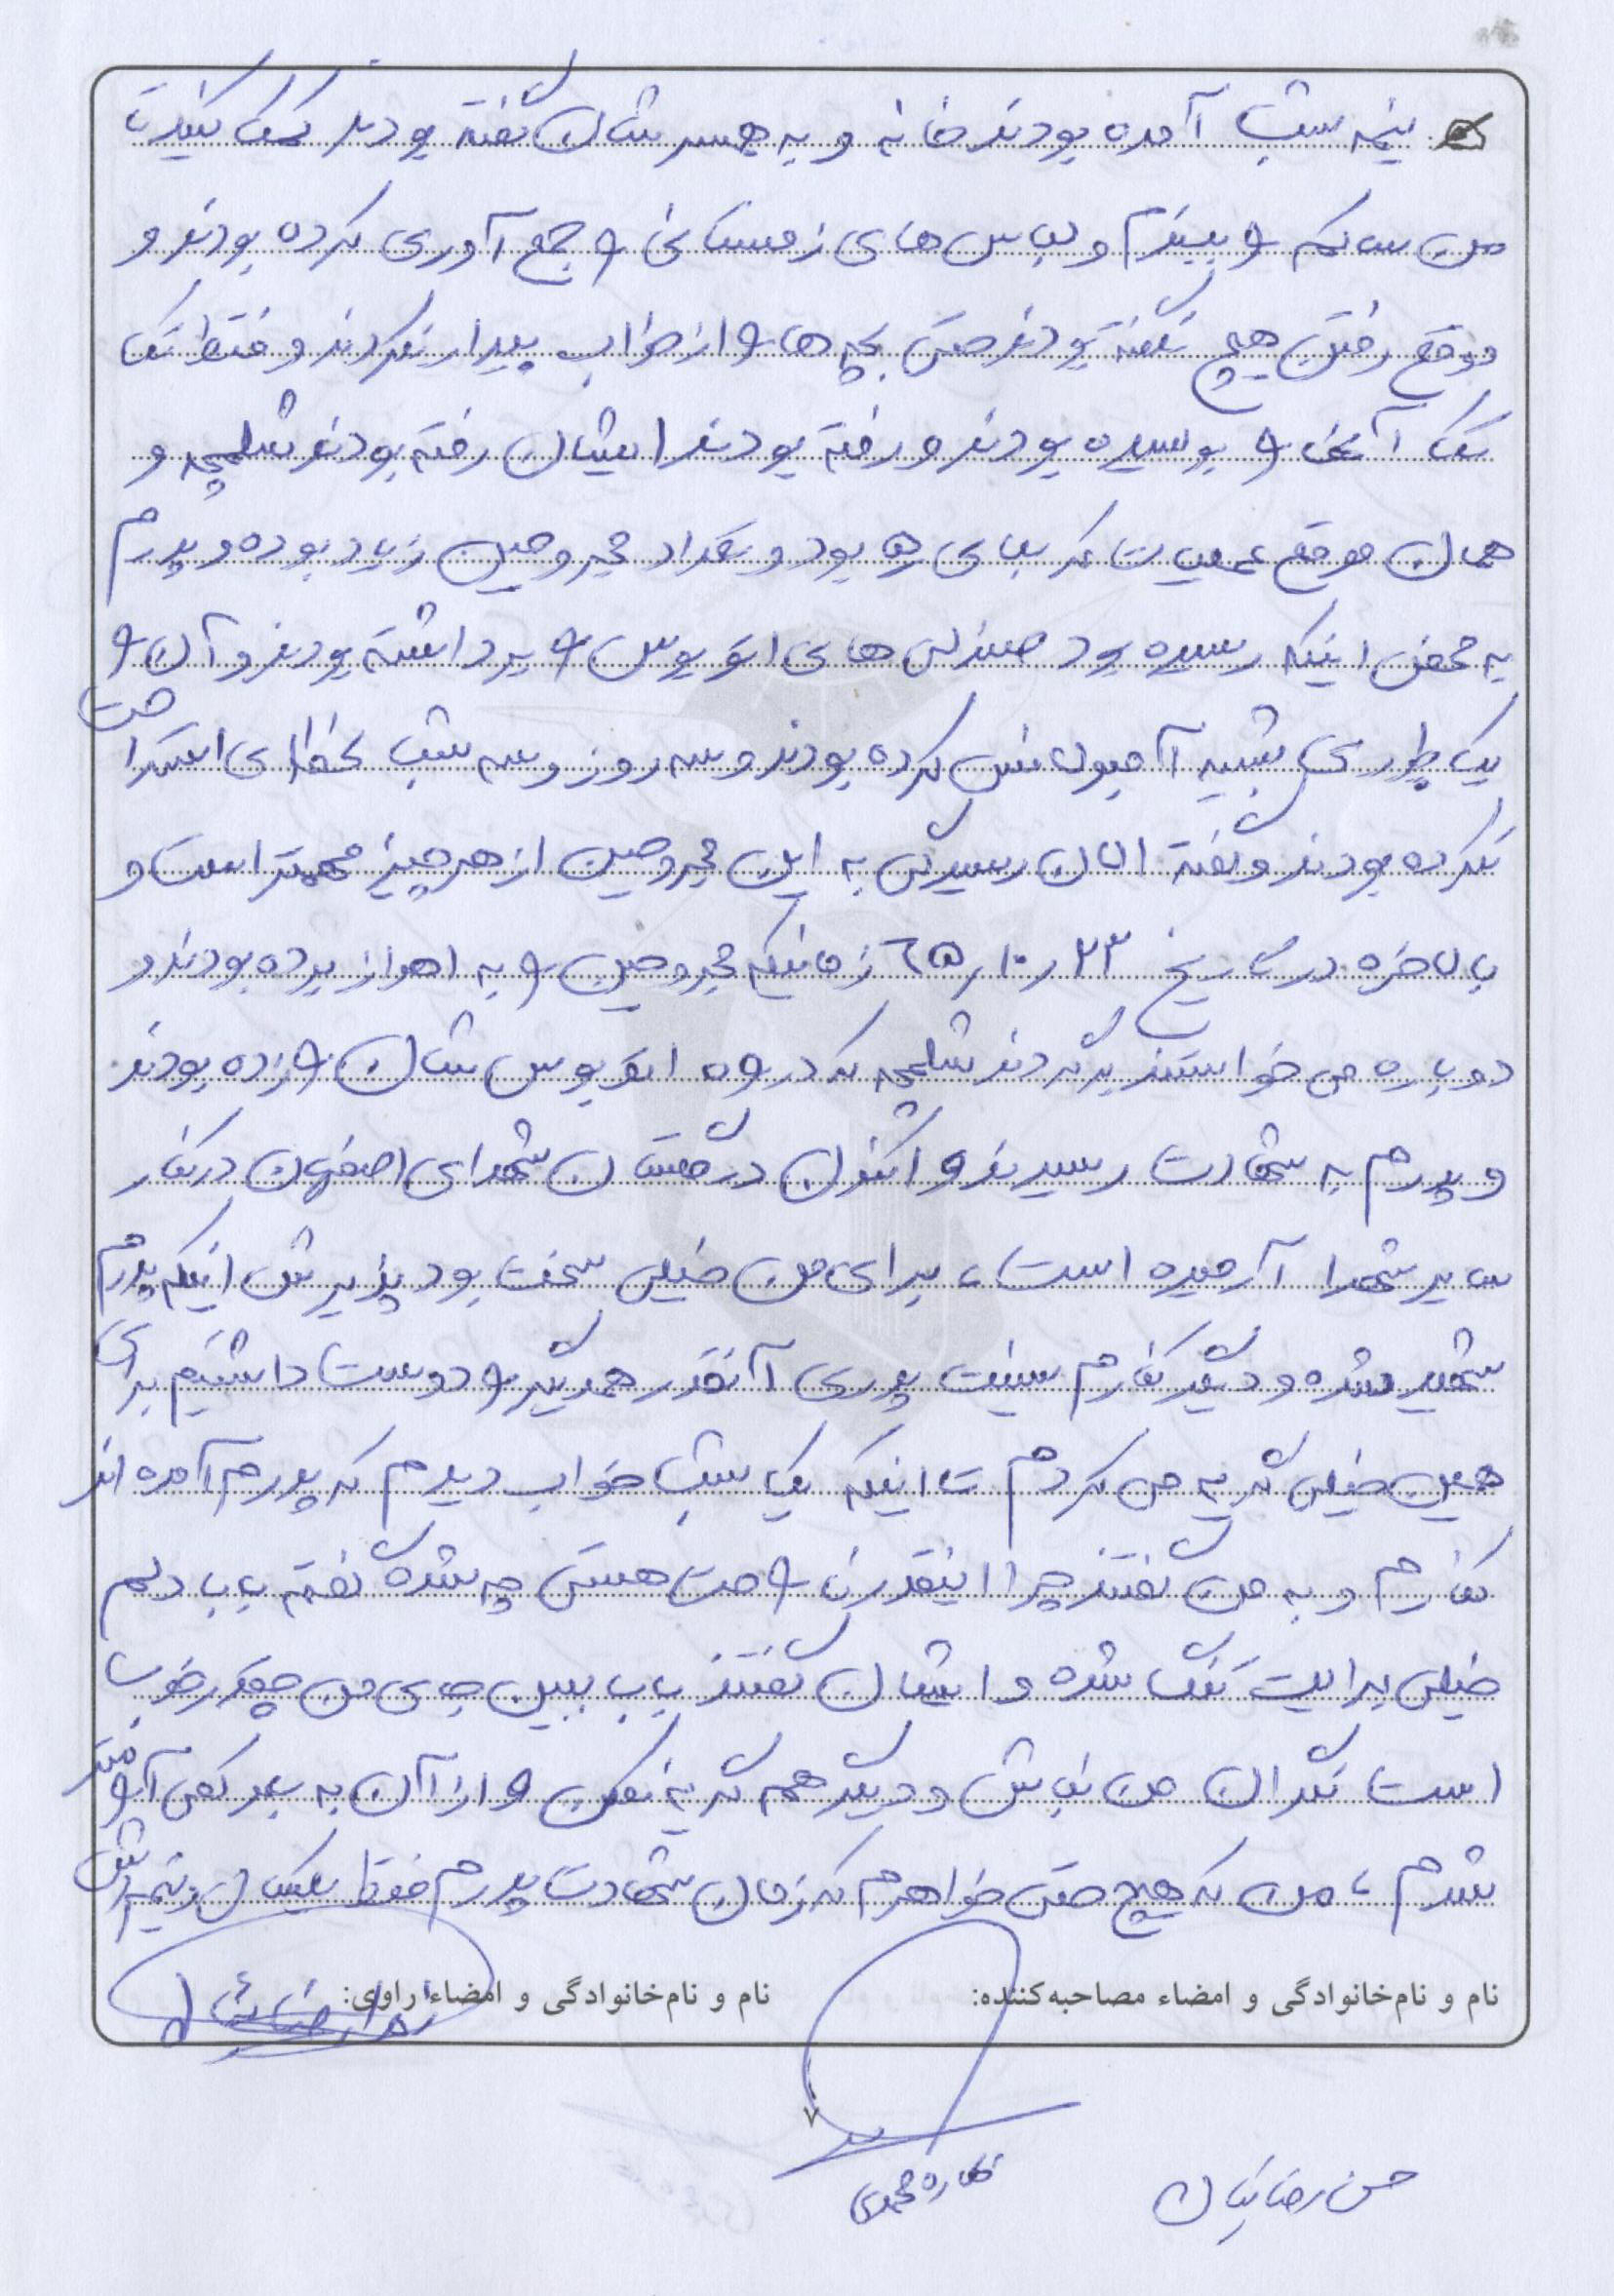 نیمه شب آمده بودند خانه و به همسرشان گفته بودند کمک کنید تا
من ساکم را ببندم و لباس های زمستانی را جمع آوری کرده بودند و
موقع رفتن هیچ نگفته بودند حتی بچه ها را از خواب بیدار نکردند و فقط تک
تک آنها را بوسیده بودند و رفته بودند ایشان رفته بودند شلمچه و
همان موقع عملیات کربلای ۵ بود و تعداد مجروحین زیاد بوده و پدرم
به محض اینکه رسیده بود صندلی های اتوبوس را برداشته بودند و آن را
یک طوری شبیه آمبولانس کرده بودند و سه روز و سه شب لحظه ای استراحت
نکرده بودند و گفته الان رسیدگی به این مجروحین از هر چیز مهمتر است و
بالاخره در تاریخ ۶۵٫۱۰٫۲۳ زمانیکه مجروحین را به اهواز برده بودند و
دوباره می خواستند برگردند شلمچه که در راه اتوبوس شان را زده بودند
و پدرم به شهادت رسیدند و اکنون در گلستان شهدای اصفهان در کنار
سایر شهدا آرمیده است، برای من خیلی سخت بود پذیرش اینکه پدرم
شهید شده و دیگر کنارم نیست بدی آنقدر همدیگر را دوست داشتیم برای
همین خیلی گریه می کردم تا اینکه یک شب خواب دیدم که پدرم آمده اند
کنارم و به من گفتند چرا اینقدر ناراحت هستی چه شده گفتم بابا دلم
خیلی برایت تنگ شده و ایشان گفتند بابا ببین جای من چقدر خوب
است نگران من نباش و دیگر هم گریه نکن و از آن به بعد کمی آرام تر
شدم، من که هیچ حتی خواهرم که زمان شهادت پدرم فقط یکسال و نیمه اش
نام و نام‌خانوادگی و امضاء مصاحبه‌کننده: نام و نام‌خانوادگی و امضاء راوی:
۷
محمدی
حسن رضائیان